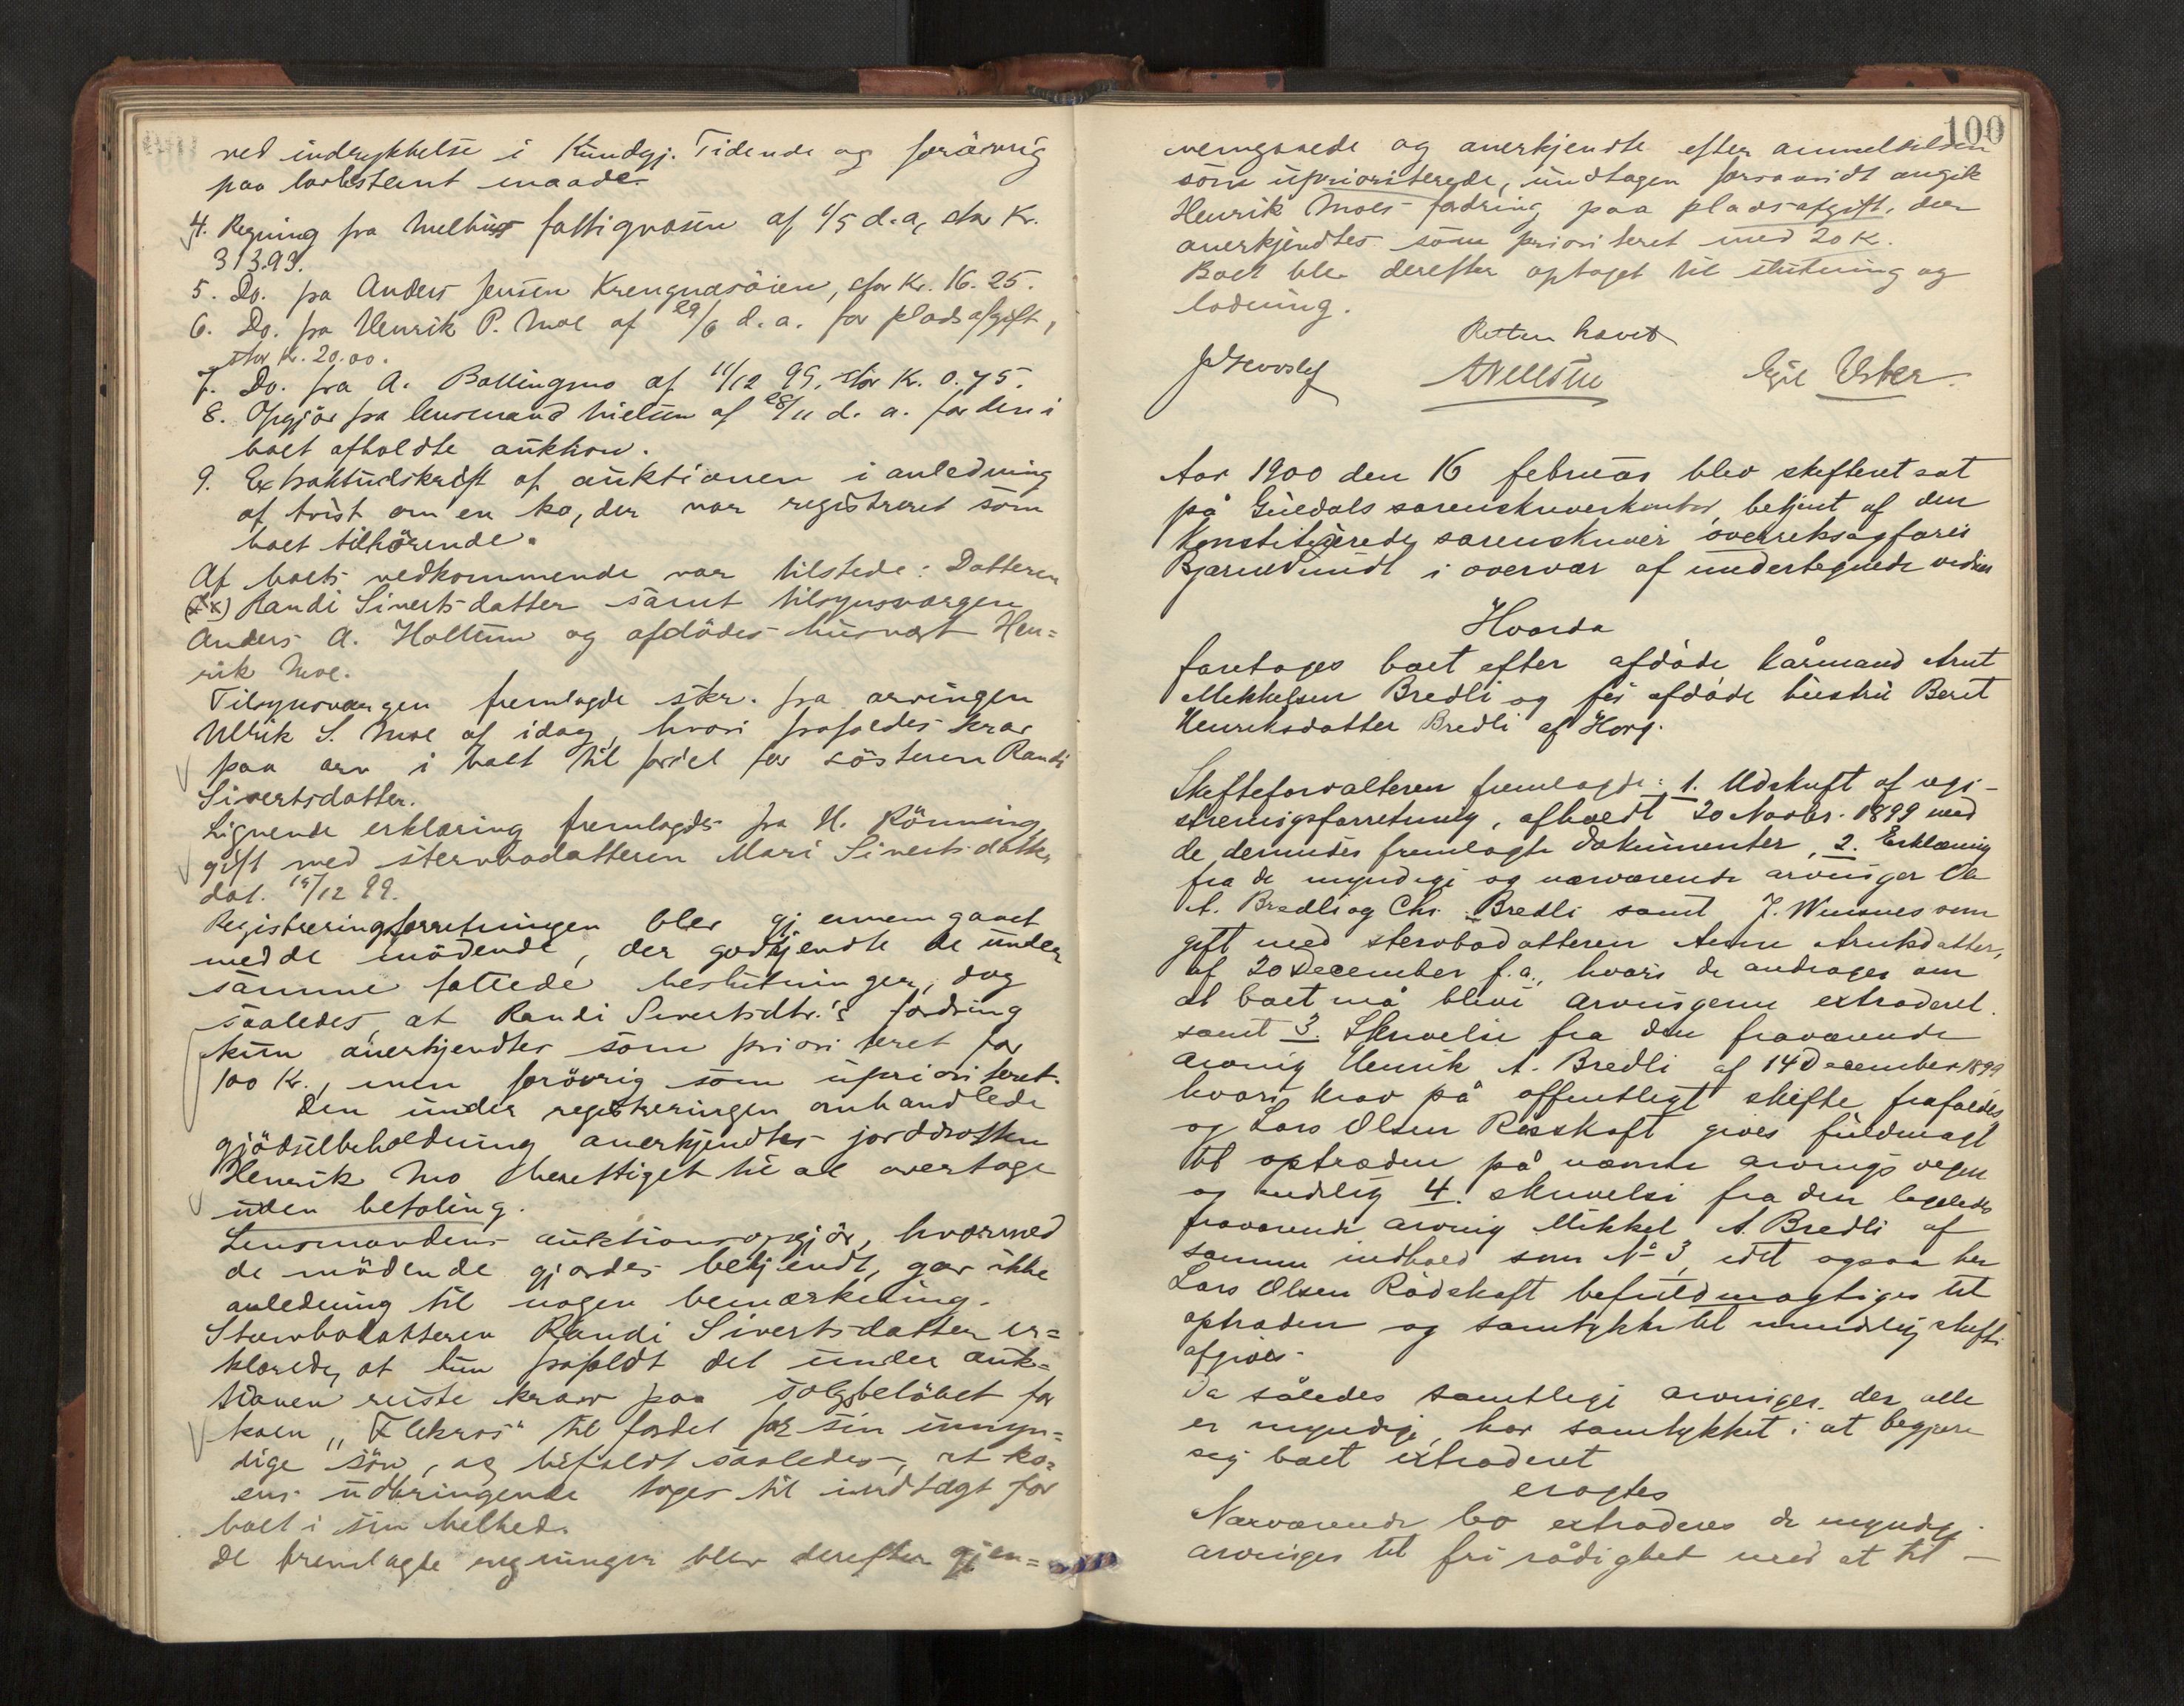 ved indrykkelse i Kundgj. Tidende og forövrig
paa lovbestemt maade.
4. Regning fra Melhus fattigvæsen af 1/5 d.a, stor Kr.
313.93.
5. Do. fra Anders Jensen Krengnæsöien, stor Kr. 16.25.
6. Do. fra Henrik P. Moe af 29/6 d.a. for pladsafgift,
stor Kr. 20.00.
7. Do. fra A. Ballingmo af 11/12 99, stor Kr. 0.75.
8. Opgjör fra lensmand Nielsen af 28/11 d.a. for den i
boet afholdte auktion.
9. Extraktudskrift af auktionen i anledning
af tvist om en ko, der var registreret som
boet tilhörende.
Af boets vedkommende var tilstede: Datteren
Randi Sivertsdatter samt tilsynsværgen
Anders A. Hollum og afdödes husvært Hen=
rik Moe.
Tilsynsværgen fremlagde skr. fra arvingen
Ulrik S. Moe af idag, hvori frafaldes krav
paa arv i boet til fordel for sösteren Randi
Sivertsdatter.
Lignende erklæring fremlagdes fra H. Rönning
gift med stervbodatteren Mari Sivertsdatter,
dat. 15/12 99.
Registreringsforretningen blev gjennemgaaet
med de mödende, der godkjendte de under
samme fattede beslutninger, dog
saaledes, at Randi Sivertsdtr.'s fordring
kun anerkjendtes som prioriteret for
100 Kr., men forövrig som uprioriteret.
Den under registreringen omhandlede
gjödselbeholdning anerkjendtes jorddrotten
Henrik Mo berettiget til at overtage
uden betaling.
Lensmandens auktionsopgjör, hvormed
de mödende gjordes bekjendt, gav ikke
anledning til nogen bemærkning.
Stervbodatteren Randi Sivertsdatter er=
klærede, at hun frafaldt det under auk=
tionen reiste krav paa salgsbelöbet for
koen "Flekros" til fordel for sin umyn=
dige sön, og bifaldt saaledes, at ko=
ens udbringende toges til indtægt for
boet i sin helhed.
De fremlagte regninger blev derefter gjen=
100
nemgaaede og anerkjendte efter anmeldelsen
som uprioriterede, undtagen forsaavidt angik
Henrik Moes fordring paa pladsafgift, der
anerkjendtes som prioriteret med 20 K.
Boet blev derefter optaget til slutning og
lodning.
Retten hævet
Egil Uster
Aar 1900 den 16 februar blev skifteret sat
på Guldals sorenskriverkontor, betjent af den
Konstituerede sorenskriver overretssagförer
Bjarne Vundt i overvær af undertegnede vidner
Hvorda
foretoges boet efter afdöde kårmand Arnt
Mikkelsen Bredli og før afdöde hustru Beret
Henriksdatter Bredli af Horg.
Skifteforvalteren fremlagde: 1. Udskrift af regi-
streringsforretning, afholdt 20 Novbr. 1899 med
de derunder fremlagte dokumenter, 2. Erklæring
fra de myndige og nærværende arvinger Ole
A. Bredli og Chr. Bredli samt J. Winsnes som
gift med stervbodatteren Anne Arntsdatter,
af 20 December f.a., hvori de androger om
at boet må blive arvingerne extraderet.
samt 3. Skrivelse fra den fraværende
arving Henrik A. Bredli af 14 December 1899
hvori krav på offentligt skifte frafaldes
og Lars Olsen Rosskaft gives fuldmagt
til optræden på nævnte arvings vegne
og endelig 4. skrivelse fra den ligeledes
fraværende arving Mikkel A. Bredli af
samme indhold som No 3, idet ogsaa her
Lars Olsen Rödskaft befuldmægtiges til
optræden og samtykke til mindelig skifte
afgives.
Da således samtlige arvinger, der alle
er myndige, har samtykket i at begjære
sig boet extraderet
eragtes
Nærværende bo extraderes de myndige
arvinger til fri rådighed med at til-